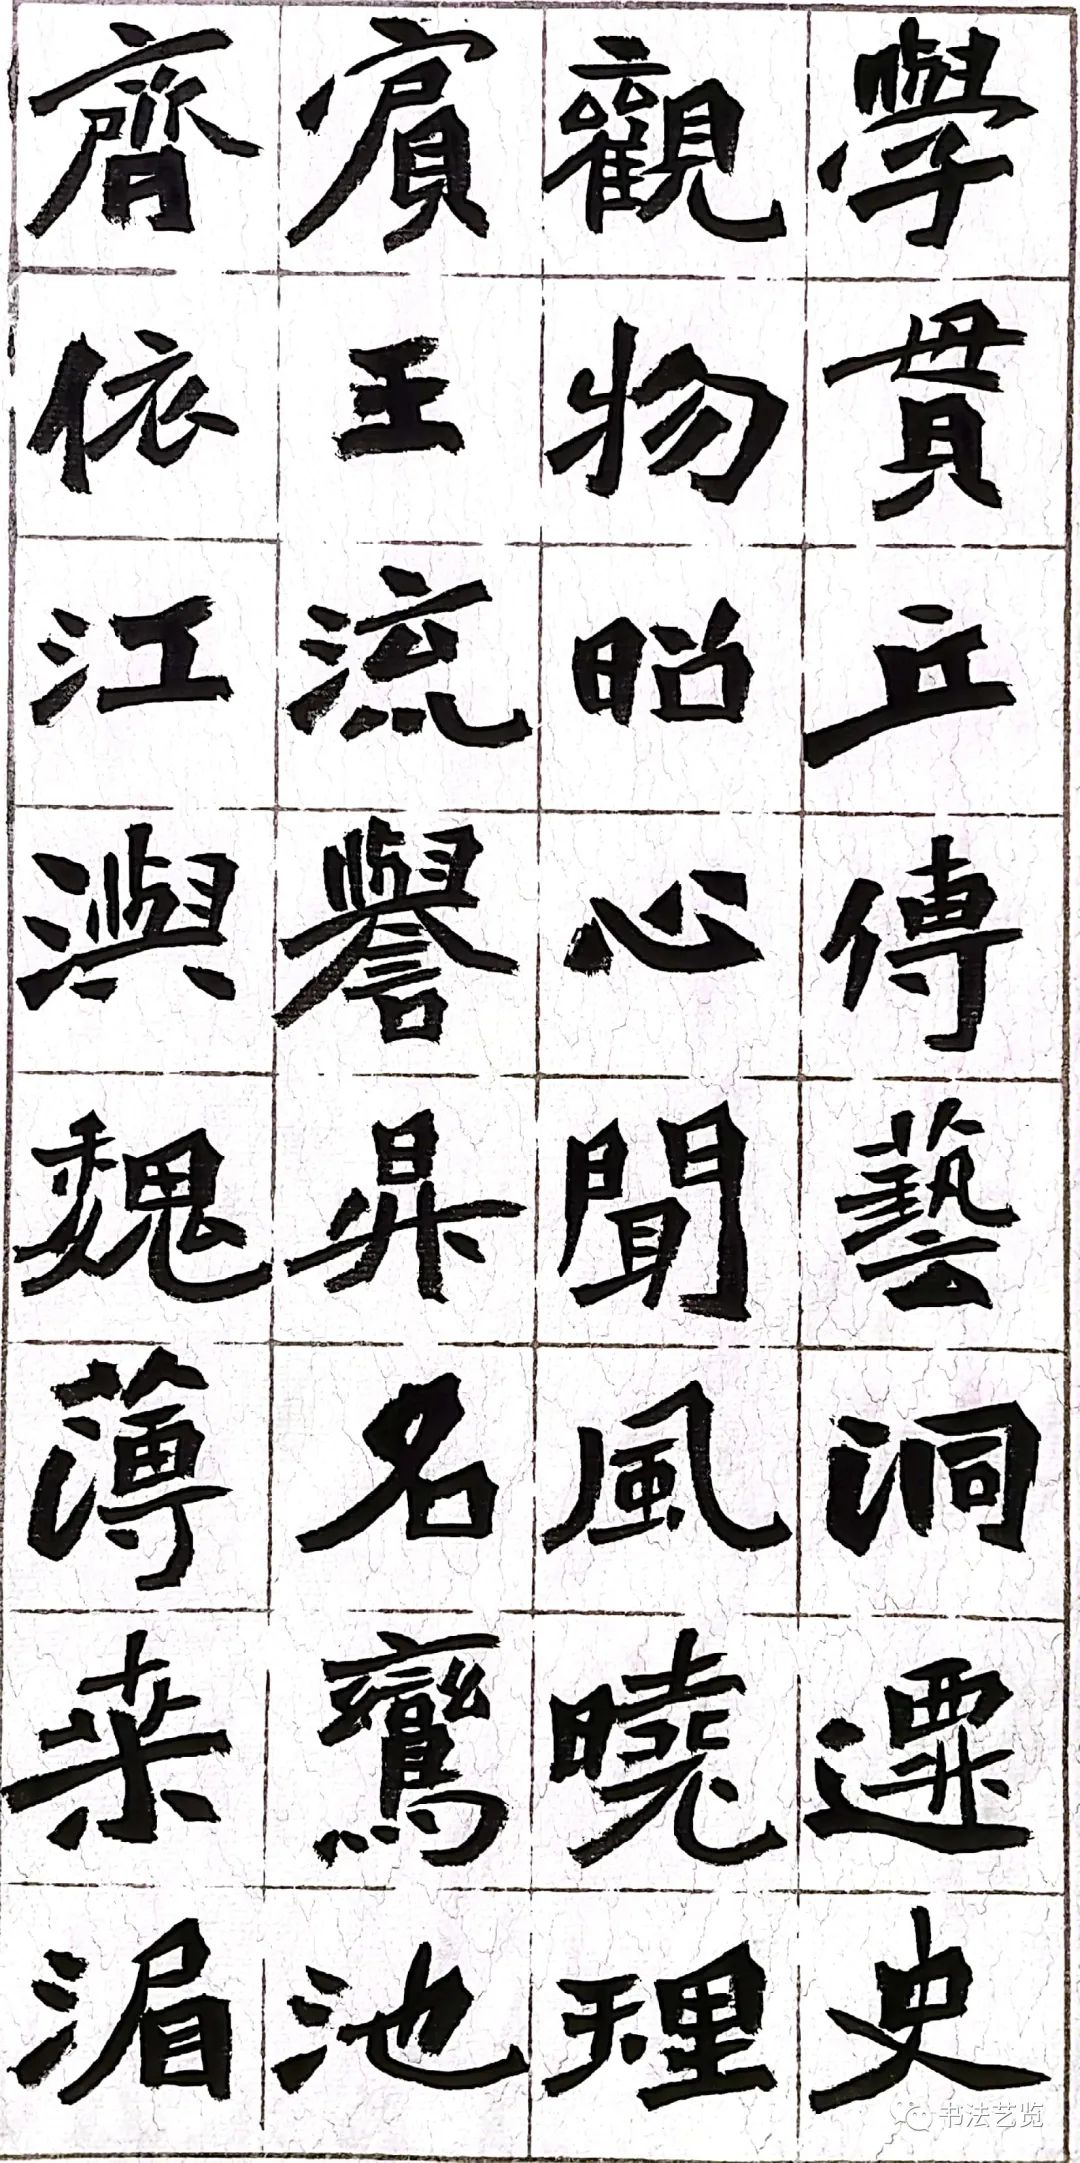 學貫丘傳藝洞遷史
觀物昭心聞風曉理
賓王流譽昇名鸞池
齊依江澳魏薄桒湄
书法艺览